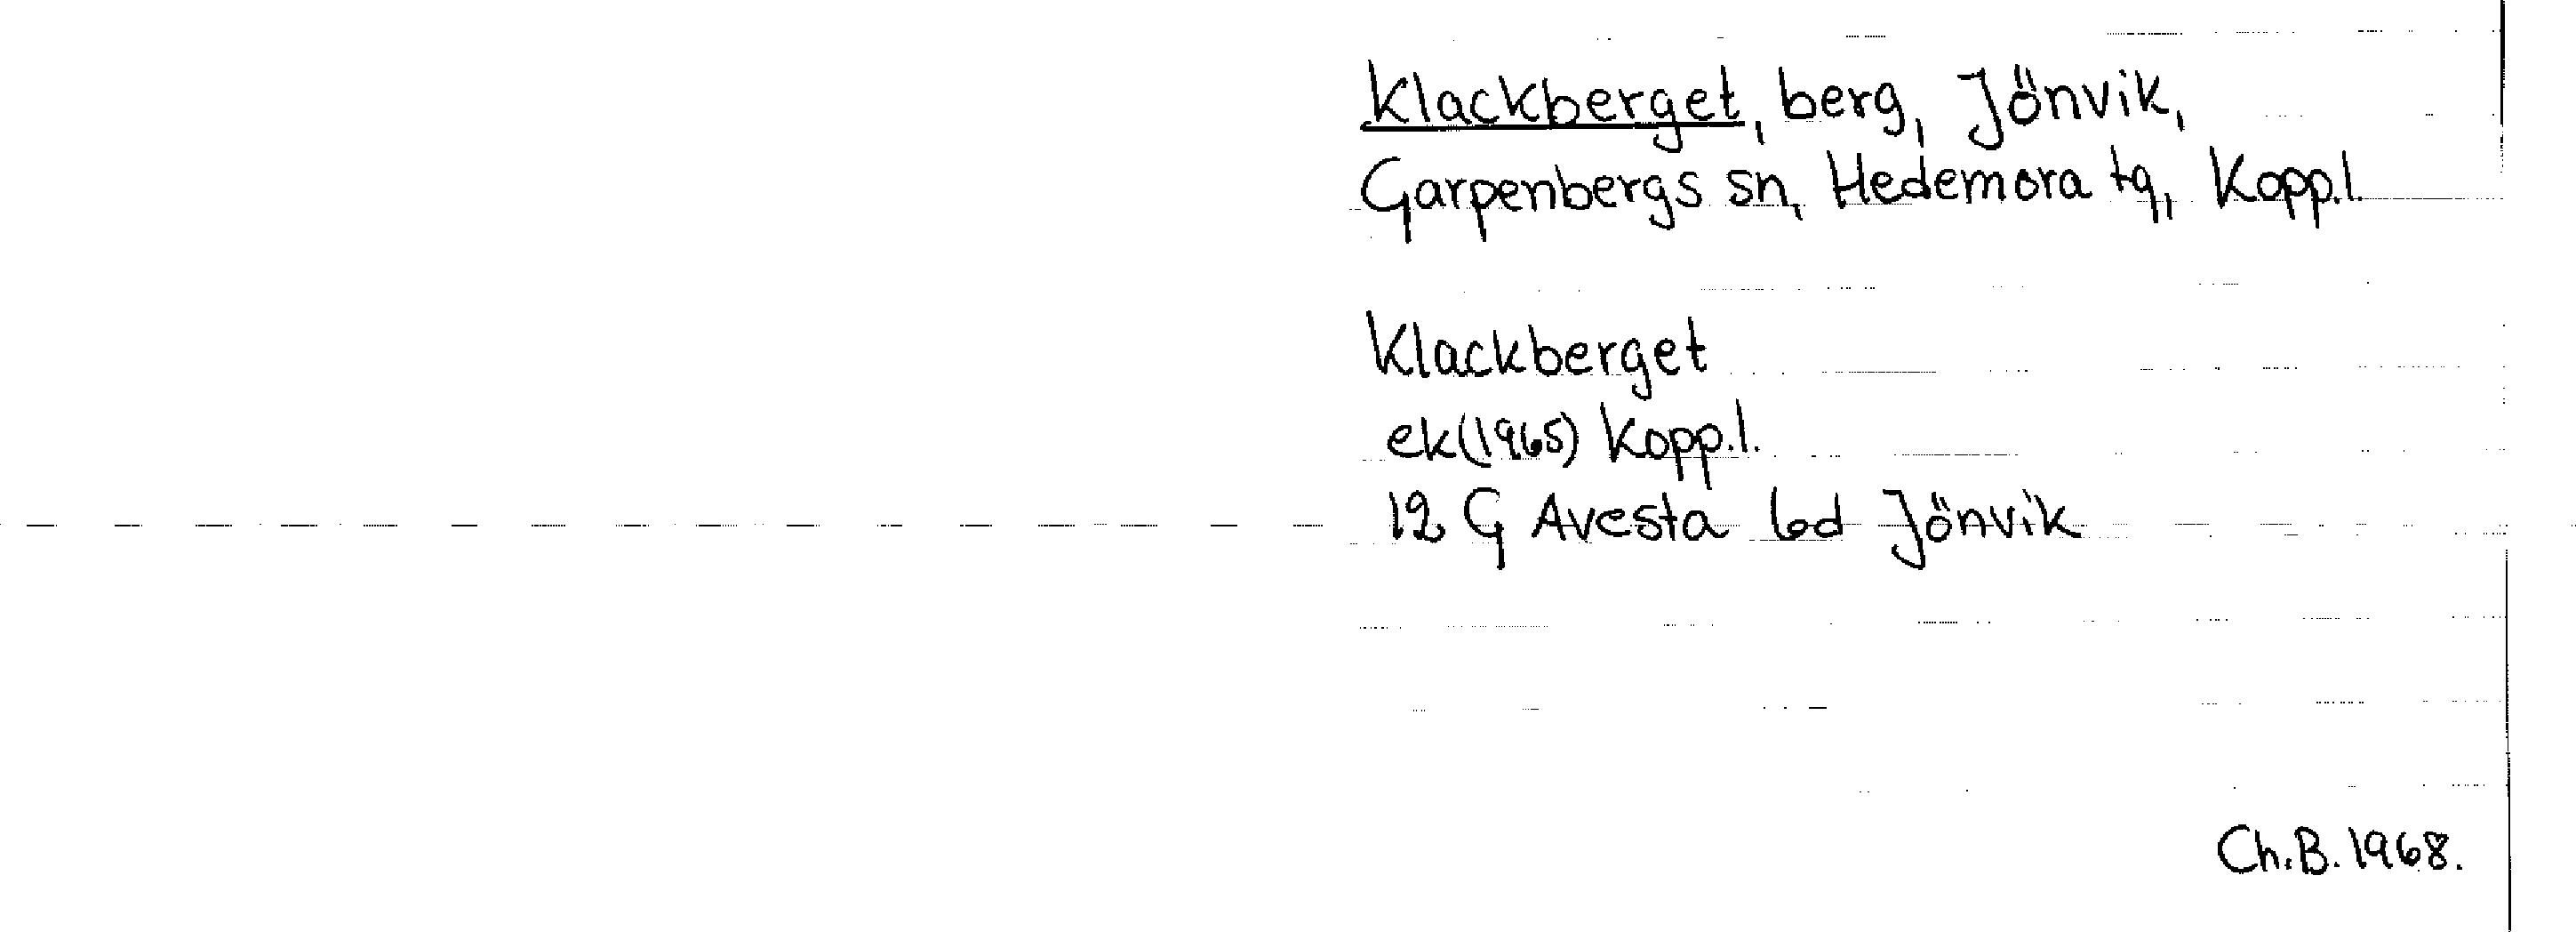 Klackberget, berg, Jönvik,
Garpenbergs sn, Hedemora tg, Kopp.l.
Klackberget
ek(1965) Kopp.l.
12 G Avesta 6d Jönvik
Ch.B. 1968.